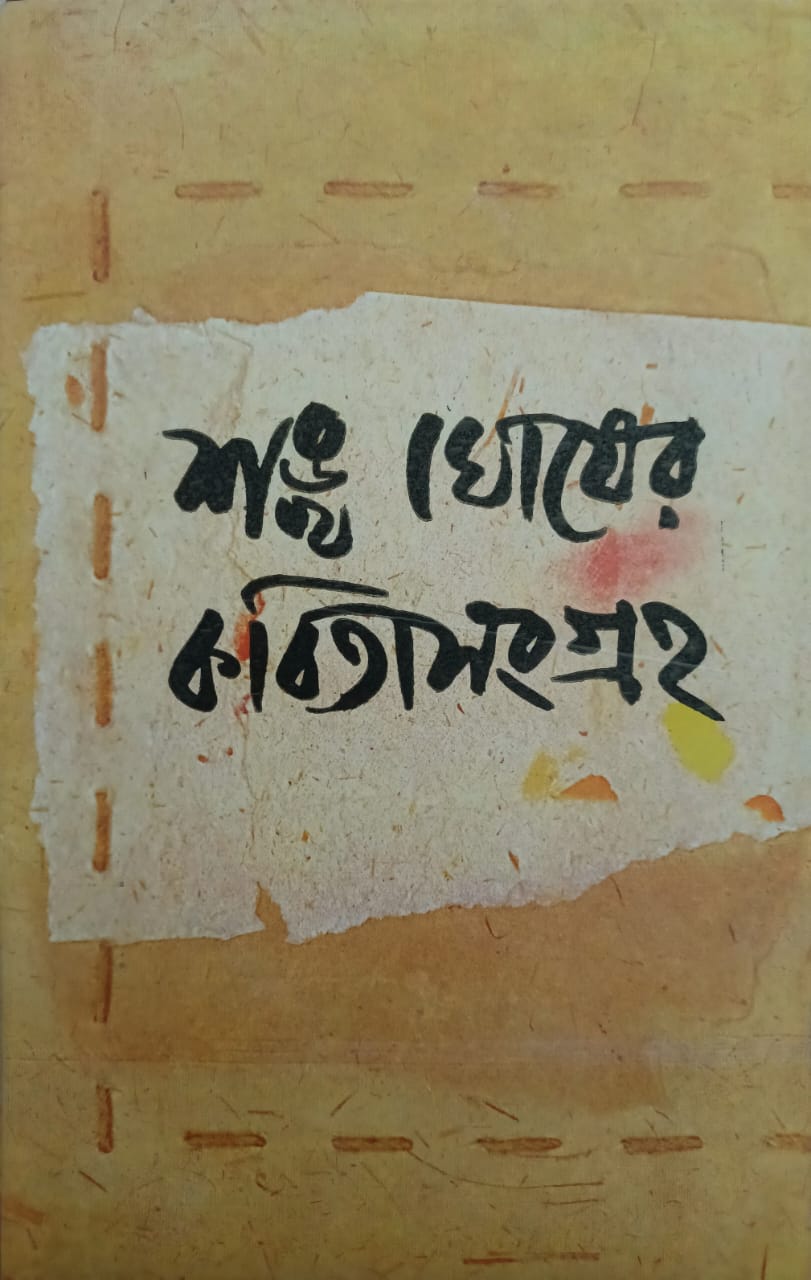 শঙ্খ ঘোষের
কবিতাসংগ্রহ